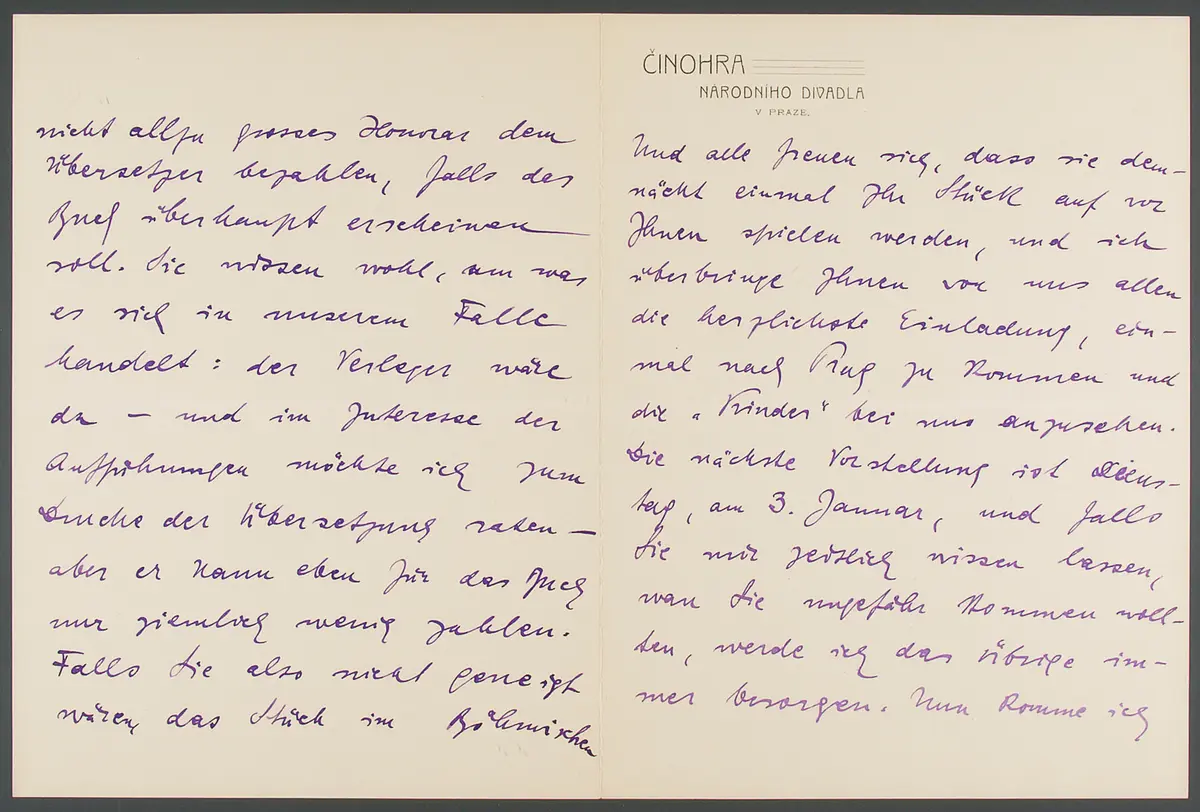 nicht allzu grosses Honorar dem
Übersetzer bezahlen, falls das
Buch überhaupt erscheinen
soll. Sie wissen wohl, um was
es sich in unserem Falle
handelt: der Verleger wäre
da – und im Interesse der
Aufführungen möchte ich zum
Drucke der Übersetzung raten –
aber er kann eben für das Buch
nur ziemlich wenig zahlen.
Falls Sie also nicht geneigt
wären, das Stück im Böhmischen
ČINOHRA
NÁRODNÍHO DIVADLA
V PRAZE.
Und alle freuen sich, dass sie dem-
nächt einmal Ihr Stück auf vor
Ihnen spielen werden, und ich
überbringe Ihnen von uns allen
die herzlichste Einladung, ein-
mal nach Prag zu kommen und
die „Kinder" bei uns anzusehen.
Die nächste Vorstellung ist Diens-
tag, am 3. Januar, und falls
Sie mir zeitlich wissen lassen,
wan Sie ungefähr kommen woll-
ten, werde ich das Übrige im-
mer besorgen. Nun komme ich